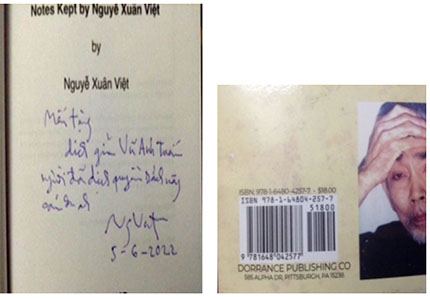 Notes Kept by Nguyễ Xuân Việt
by
Nguyễ Xuân Việt
Mến tặng
dịch giả Vũ Anh Tuấn
người đã dịch quyển sách này
5-6-2022
ISBN: 978-1-6480-4257-7 - $18.00
ISBN 978-1-64804-257-7
51800
9 781648 042577
DORRANCE PUBLISHING CO
585 ALPHA DR, PITTSBURGH, PA 15238